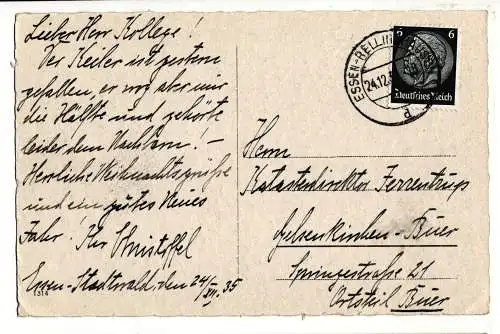 Lieber Herr Kollege!
Der Keiler ist gestern
gefallen, er wog aber nur
die Hälfte und gehörte
leider dem Nachbarn! —
Herzliche Weihnachtsgrüße
und ein gutes Neues
Jahr. Ihr Christoffel
Essen-Stadtwald, den 24/XII. 35
1314
ESSEN-RELLING
24.12.
d
6 6
Deutsches Reich
Herrn
Katasterdirektor Ferrentrup
Gelsenkirchen-Buer
Springestraße 21
Ortsteil Buer